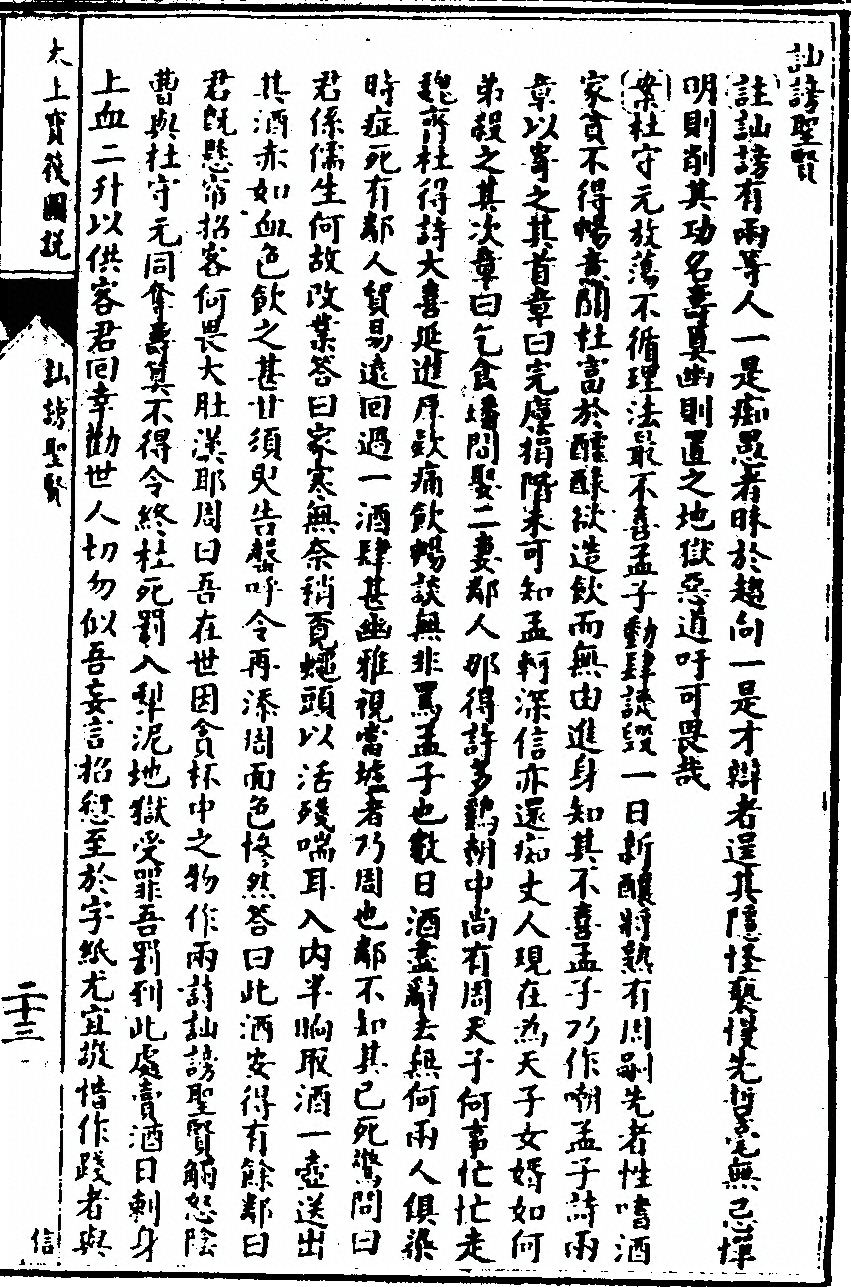 訕謗聖賢
註訕謗有兩等人一是痴愚者昧於趨向一是才辯者逞其隱怪褻慢先哲毫無忌憚
明則削其功名壽算幽則置之地獄惡道吁可畏哉
案杜守元放蕩不循理法最不喜孟子動肆譏毀一日新釀將熟有周嗣先者性嗜酒
家貧不得暢意聞杜富於醞釀欲造飲而無由進身知其不喜孟子乃作嘲孟子詩兩
章以寄之其首章曰完廩捐階未可知孟軻深信亦還痴丈人現在為天子女婿如何
弟殺之其次章曰乞食墦間娶二妻鄰人那得許多雞朝中尚有周天子何事忙忙走
魏齊杜得詩大喜延進厚款痛飲暢談無非罵孟子也數日酒盡辭去無何兩人俱染
時症死有鄰人貿易遠回過一酒肆甚幽雅視當壚者乃周也鄰不知其已死驚問曰
君係儒生何故改業答曰家寒無奈稍覓蠅頭以活殘喘耳入內半晌取酒一壺送出
其酒亦如血色飲之甚甘須臾告罄呼令再添周面色慘然答曰此酒安得有餘鄰曰
君既懸帘招客何畏大肚漢耶周曰吾在世因貪杯中之物作兩詩訕謗聖賢觸怒陰
曹與杜守元同奪壽算不得令終杜死罰入犁泥地獄受罪吾罰到此處賣酒日刺身
上血二升以供客君回幸勸世人切勿似吾妄言招愆至於字紙尤宜敬惜作踐者與
太上寶筏圖說
訕謗聖賢
二十三
信